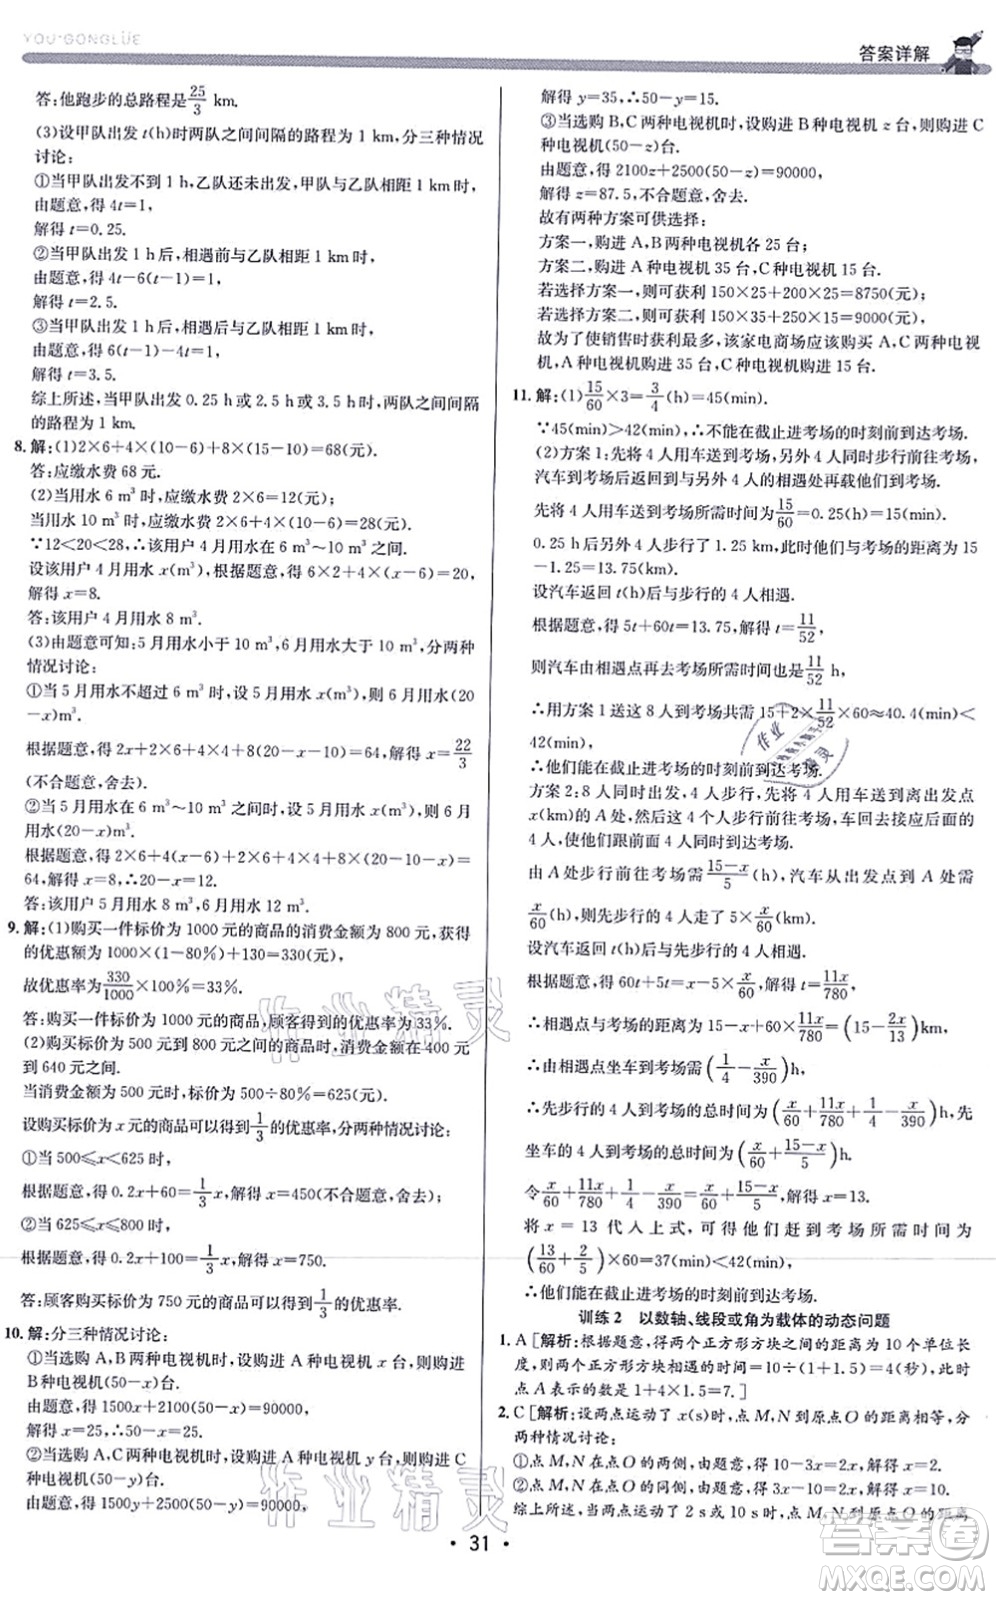 YOU·GONGLÜE
答案详解
答:他跑步的总路程是25/3 km.
(3)设甲队出发 t(h)时两队之间间隔的路程为 1 km,分三种情况
讨论:
①当甲队出发不到 1 h,乙队还未出发,甲队与乙队相距 1 km时,
由题意,得 4t=1,
解得 t=0.25.
②当甲队出发 1 h后,相遇前与乙队相距 1 km时,
由题意,得 4t-6(t-1)=1,
解得 t=2.5.
③当甲队出发 1 h后,相遇后与乙队相距 1 km时,
由题意,得 6(t-1)-4t=1,
解得 t=3.5.
综上所述,当甲队出发 0.25 h或 2.5 h或 3.5 h时,两队之间间隔
的路程为 1 km.
8. 解:(1)2×6+4×(10-6)+8×(15-10)=68(元).
答:应缴水费 68 元.
(2)当用水 6 m³时,应缴水费 2×6=12(元);
当用水 10 m³时,应缴水费 2×6+4×(10-6)=28(元).
∵12<20<28,∴该用户 4 月用水在 6 m³~10 m³之间.
设该用户 4 月用水 x(m³),根据题意,得 6×2+4×(x-6)=20,
解得 x=8.
答:该用户 4 月用水 8 m³.
(3)由题意可知:5 月用水小于 10 m³,6 月用水大于 10 m³,分两种
情况讨论:
①当 5 月用水不超过 6 m³时,设 5 月用水 x(m³),则 6 月用水(20
-x)m³.
根据题意,得 2x+2×6+4×4+8×(20-x-10)=64,解得 x=22/3
(不合题意,舍去).
②当 5 月用水在 6 m³~10 m³之间时,设 5 月用水 x(m³),则 6 月
用水(20-x)m³.
根据题意,得 2×6+4×(x-6)+2×6+4×4+8×(20-x-10)=
64,解得 x=8,∴20-x=12.
答:该用户 5、6 月用水量分别为 8 m³,12 m³.
9. 解:(1)购买一件标价为 1000 元的商品的消费金额为 800 元,获得
的优惠额为 1000×(1-80%)+130=330(元),
故优惠率为330/1000×100%=33%.
答:购买一件标价为 1000 元的商品,顾客得到的优惠率为 33%.
(2)购买标价在 500 元到 800 元之间的商品时,消费金额在 400 元
到 640 元之间.
当消费金额为 500 元时,标价为 500÷80%=625(元),
设购买标价为 x 元的商品可以得到1/3的优惠率,分两种情况讨论:
①当 500≤x<625 时,
根据题意,得 0.2x+60=1/3x,解得 x=450(不合题意,舍去);
②当 625≤x≤800 时,
根据题意,得 0.2x+100=1/3x,解得 x=750.
答:顾客购买标价为 750 元的商品可以得到1/3的优惠率.
10. 解:分三种情况讨论:
①当选购 A,B两种电视机时,设购进 A 种电视机 x 台,则购进
B种电视机(50-x)台.
由题意,得 1500x+2100(50-x)=90000,
解得 x=25,∴50-x=25.
②当选购 A,C两种电视机时,设购进 A种电视机 y 台,则购进 C
种电视机(50-y)台.
由题意,得 1500y+2500(50-y)=90000,
解得 y=35,∴50-y=15.
③当选购 B,C两种电视机时,设购进 B 种电视机 z 台,则购进 C
种电视机(50-z)台.
由题意,得 2100z+2500(50-z)=90000,
解得 z=87.5,不合题意,舍去.
故有两种方案可供选择:
方案一,购进 A,B两种电视机各 25 台;
方案二,购进 A 种电视机 35 台,C种电视机 15 台.
若选择方案一,则可获利 150×25+200×25=8750(元);
若选择方案二,则可获利 150×35+250×15=9000(元).
故为了使销售时获利最多,该家电商场应该购买 A、C两种电视
机,A 种电视机购进 35 台,C种电视机购进 15 台.
11. 解:(1)15/60×3=3/4(h)=45(min).
∵45(min)>42(min),∴不能在截止进考场的时刻前到达考场.
(2)方案1:先将 4 人用车送到考场,另外 4 人同时步行前往考场,
汽车到考场后返回到与另外 4 人的相遇处再载他们到考场.
先将 4 人用车送到考场所需时间为15/60=0.25(h)=15(min).
0.25 h后另外 4 人步行了 1.25 km,此时他们与考场的距离为 15
-1.25=13.75(km).
设汽车返回 t(h)后与步行的 4 人相遇.
根据题意,得 5t+60t=13.75,解得 t=11/52,
则汽车由相遇点再去考场所需时间也是11/52 h.
∴用方案 1 送这 8 人到考场共需 15+2×11/52×60≈40.4(min)<
42(min),
∴他们能在截止进考场的时刻前到达考场.
方案 2:8 人同时出发,4 人步行,先将 4 人用车送到离出发点
x(km)的 A 处,然后这 4 个人步行前往考场,车回去接应后面的
4 人,使他们跟前面 4 人同时到达考场.
由 A 处步行前往考场需(15-x)/5(h),汽车从出发点到 A 处需
x/60(h),则先步行的 4 人走了5×x/60(km).
设汽车返回 t(h)后与先步行的 4 人相遇.
根据题意,得 60t+5t=x-5×x/60,解得 t=11x/780,
∴相遇点与考场的距离为 15-x+60×11x/780=(15-2x/13)km.
∴由相遇点坐车到考场需(1/4-x/390)h.
∴先步行的 4 人到考场的总时间为(x/60+11x/780+1/4-x/390)h,先
坐车的 4 人到考场的总时间为(x/60+(15-x)/5)h.
令x/60+11x/780+1/4-x/390=x/60+(15-x)/5,解得 x=13.
将 x=13 代入上式,可得他们赶到考场所需时间为
(13/60+2/5)×60=37(min)<42(min),
∴他们能在截止进考场的时刻前到达考场.
训练 2 以数轴、线段或角为载体的动态问题
1. A [解析:根据题意,得两个正方形方块的距离为 10 个单位长
度,则两个正方形方块相遇的时间=10÷(1+1.5)=4(秒),此时
点 A 表示的数是 1+4×1.5=7.]
2. C [解析:设两点运动了 x(s)时,点 M,N到原点O的距离相等,分
两种情况讨论:
①点 M,N 在点O 的两侧,由题意,得 10-6x=4x,解得 x=1.
②点 M,N 在点O 的同侧,由题意,得 6x-10=4x,解得 x=10.
综上所述,当运动了 2 s或 10 s 时,点 M,N到原点 O 的距离
作业精灵
作业精灵
作业精灵
答案圈
MXQE.COM
· 31 ·